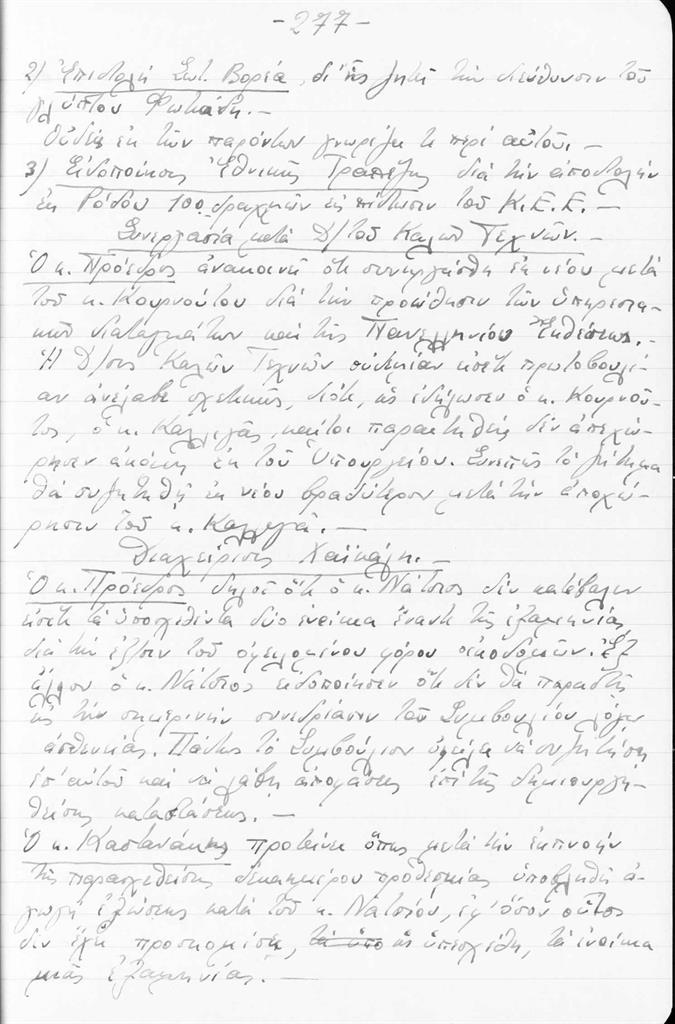 -277-
2) Ἐπιστολή Σωτ. Βορέα, δι' ἧς ζητεῖ τήν διεύθυνσιν τοῦ
γλύπτου Φωτιάδη.—
Οὐδείς ἐκ τῶν παρόντων γνωρίζει τι περί αὐτοῦ.—
3) Εἰδοποίησις Ἐθνικῆς Τραπέζης διά τήν ἀποστολήν
ἐκ Ρόδου 100 δραχμῶν εἰς πίστωσιν τοῦ Κ.Ε.Ε.—
Συνεργασία μετά Δ/τοῦ Καλῶν Τεχνῶν.—
Ὁ κ. Πρόεδρος ἀνακοινοῖ ὅτι συνειργάσθη ἐκ νέου μετά
τοῦ κ. Κουρνούτου διά τήν προώθησιν τῶν ὑπηρεσια-
κῶν διαταγμάτων καί τῆς Πανελληνίου Ἐκθέσεως.—
Ἡ Δ/σις Καλῶν Τεχνῶν οὐδεμίαν εἰσέτι πρωτοβουλί-
αν ἀνέλαβε σχετικῶς, διότι, ὡς ἐδήλωσεν ὁ κ. Κουρνοῦ-
τος, ὁ κ. Καλλιγᾶς, καίτοι παραιτηθείς δέν ἀπεχώ-
ρησεν ἀκόμη ἐκ τοῦ Ὑπουργείου. Συνεπῶς τό ζήτημα
θά συζητηθῇ ἐκ νέου βραδύτερον μετά τήν ἀποχώ-
ρησιν τοῦ κ. Καλλιγᾶ.—
Διαχείρισις Χαϊκάλη.—
Ὁ κ. Πρόεδρος δηλοῖ ὅτι ὁ κ. Νάτσιος δέν κατέβαλεν
εἰσέτι τά ὑποσχεθέντα δύο ἐνοίκια ἔναντι τῆς ἑξαμηνίας
διά τήν ἐξ/σιν τοῦ ὀφειλομένου φόρου οἰκοδομῶν. Ἐξ
ἄλλου ὁ κ. Νάτσιος εἰδοποίησεν ὅτι δέν θά παραστῇ
εἰς τήν σημερινήν συνεδρίασιν τοῦ Συμβουλίου λόγῳ
ἀσθενείας. Πάντως τό Συμβούλιον ὀφείλει νά συζητήσῃ
ἐπ' αὐτοῦ καί νά λάβῃ ἀποφάσεις ἐπί τῆς δημιουργη-
θείσης καταστάσεως.—
Ὁ κ. Καστανάκης προτείνει ὅπως μετά τήν ἐκπνοήν
τῆς παρασχεθείσης δεκαημέρου προθεσμίας ὑποβληθῇ ἀ-
γωγή ἐξώσεως κατά τοῦ κ. Νατσίου, ἐφ' ὅσον οὗτος
δέν ἔχει προσκομίσει, τά ὑπο ὡς ὑπεσχέθη, τά ἐνοίκια
μιᾶς ἑξαμηνίας.—